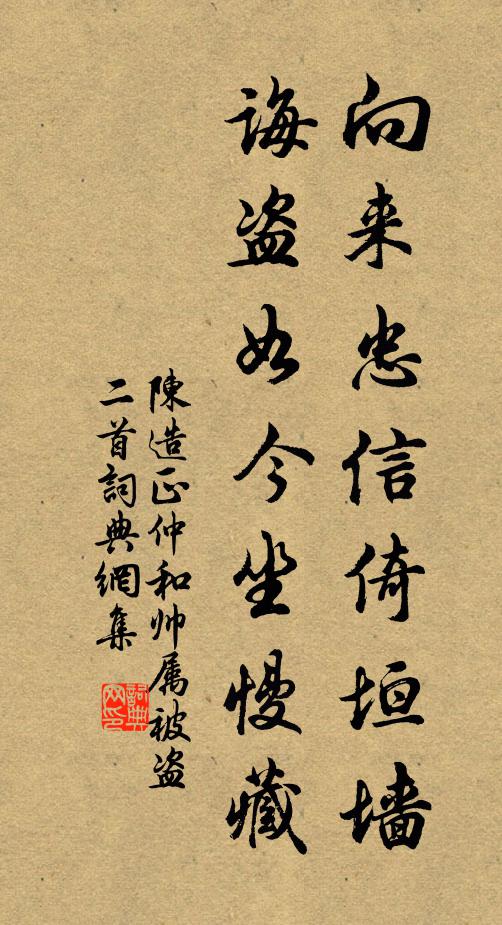 向来忠信倚垣墙
诲盗如今坐慢藏
陳造正仲和帅属被盗
二首詞典網集
詞典网印